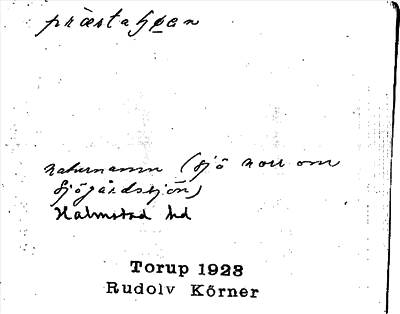 præstahøen
naturnamn (sjö norr om
Sjögårdssjön)
Halmstad hd
Torup 1928
Rudolv Körner